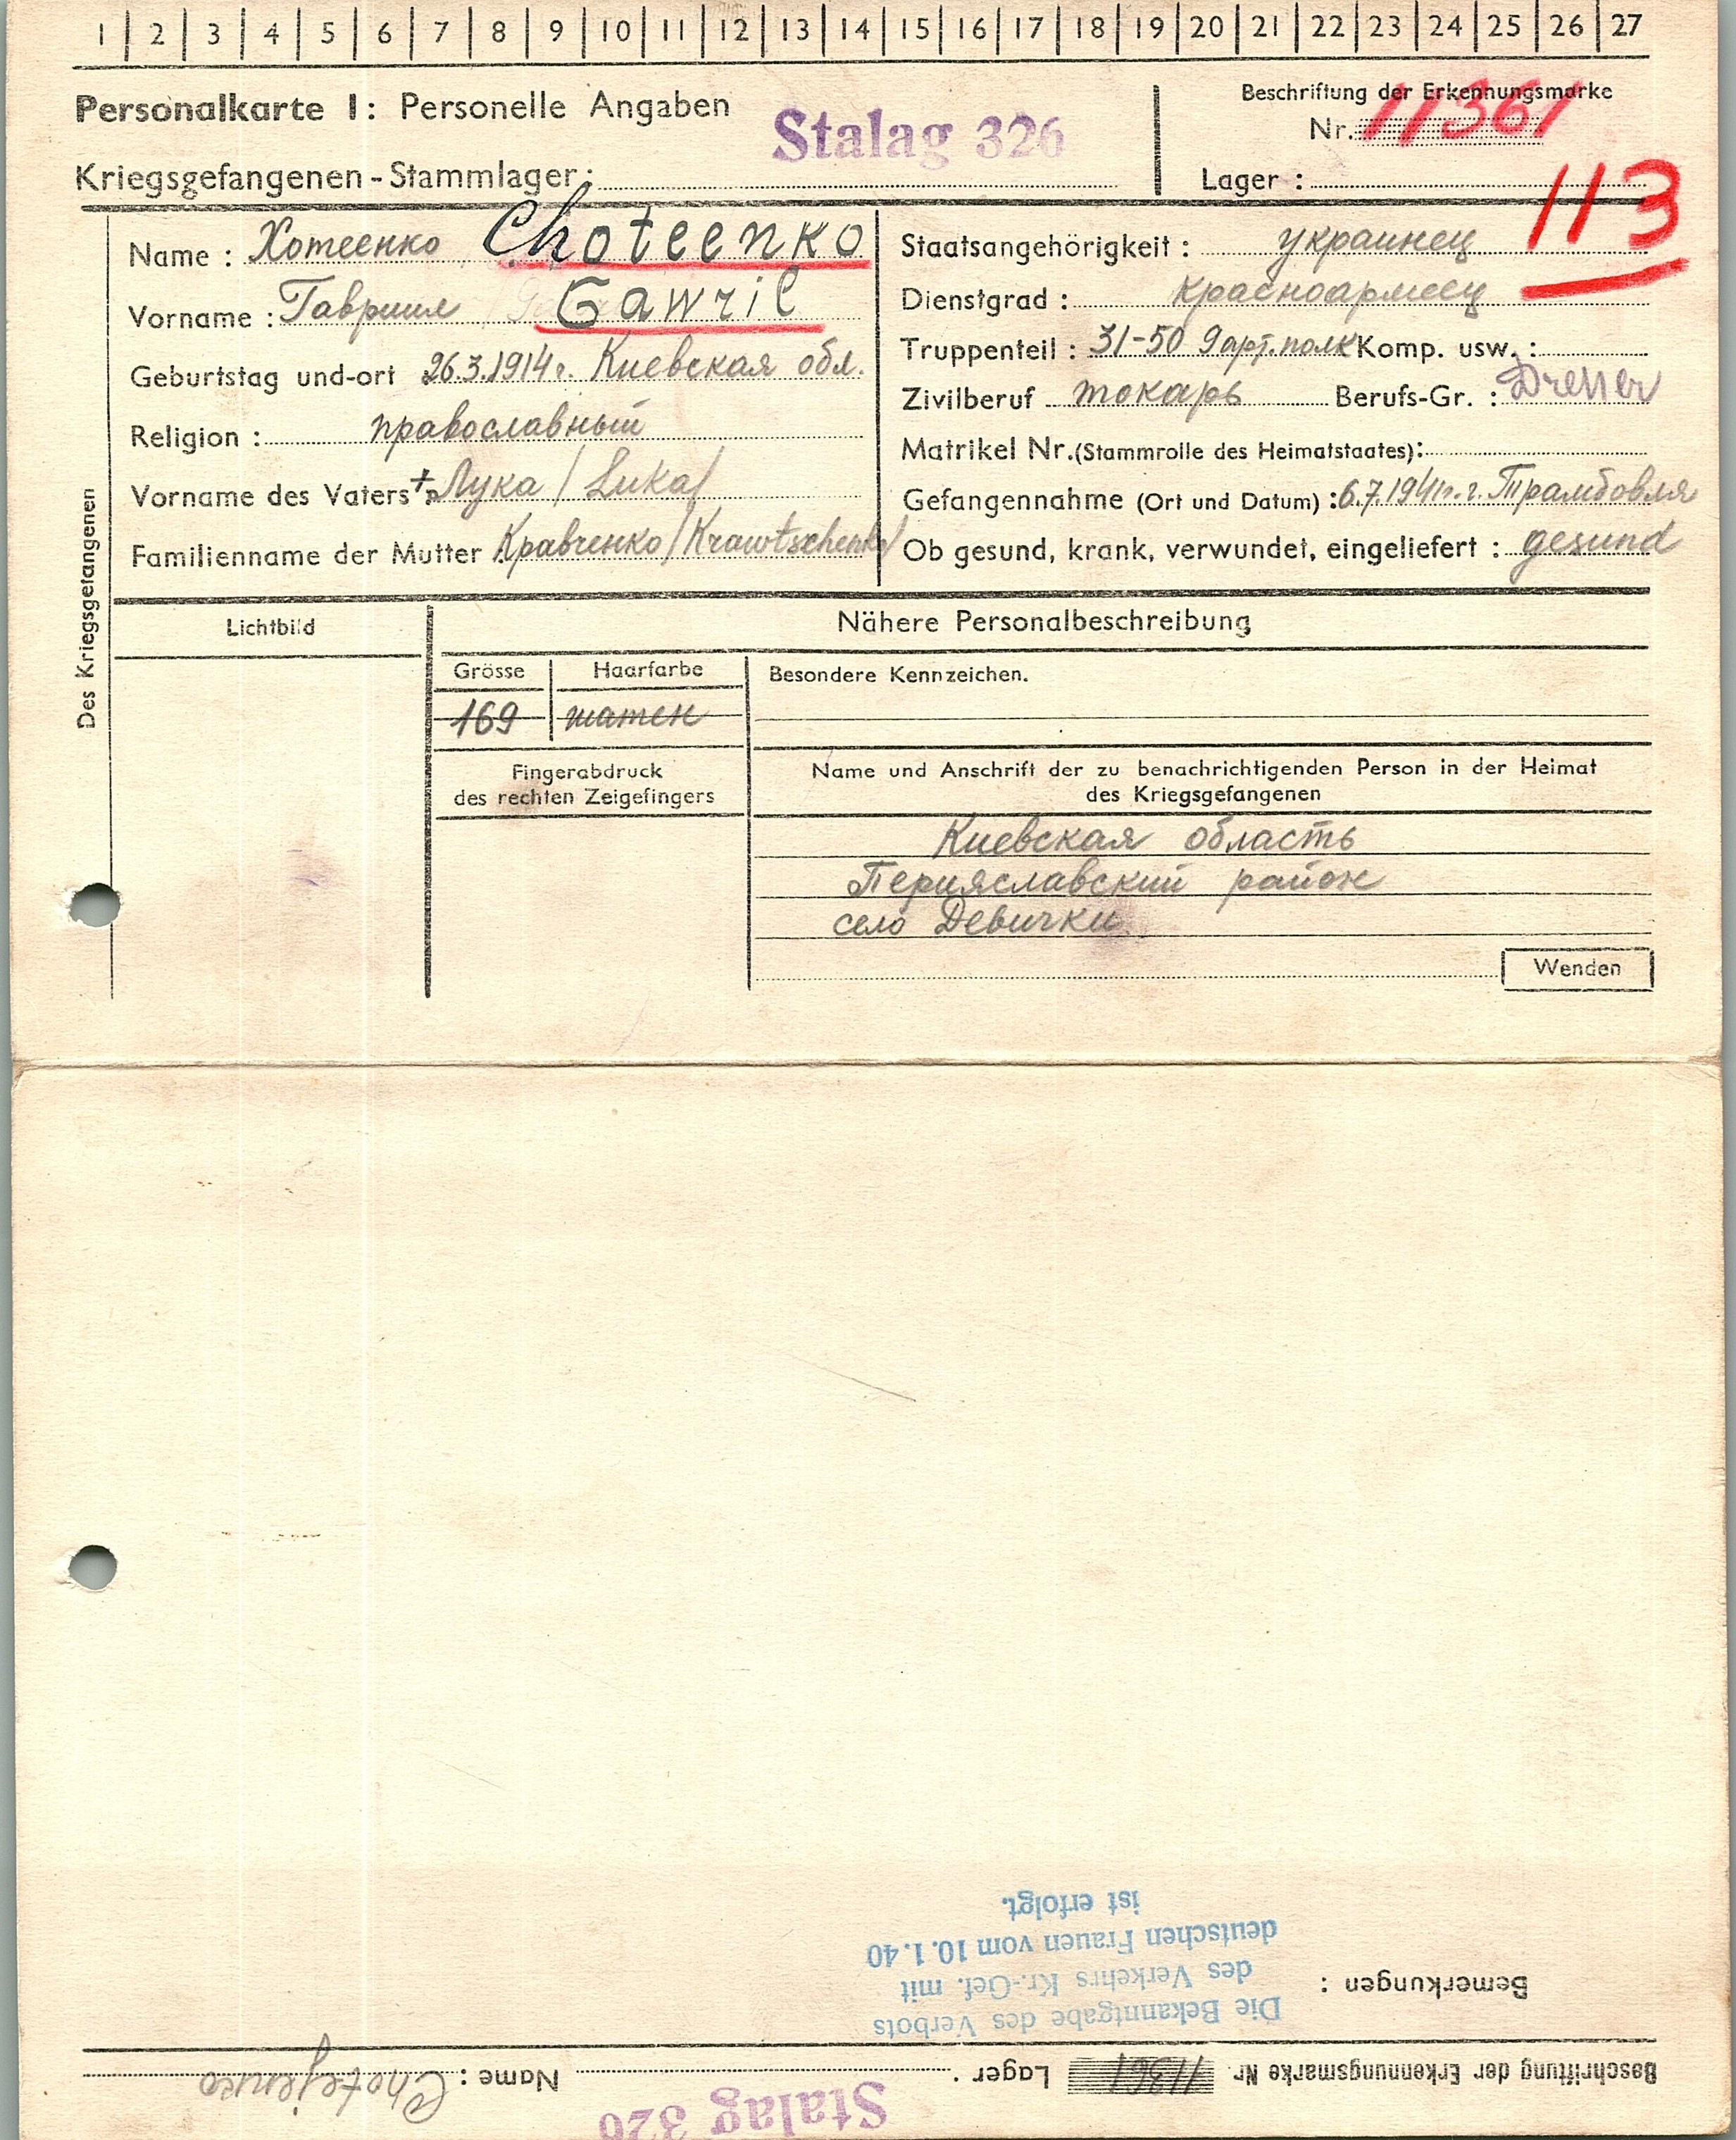 1 2 3 4 5 6 7 8 9 10 11 12 13 14 15 16 17 18 19 20 21 22 23 24 25 26 27
Personalkarte I: Personelle Angaben
Stalag 326
Kriegsgefangenen-Stammlager:
Beschriftung der Erkennungsmarke
Nr. 11361
Lager :
113
Des Kriegsgefangenen
Name : Хотеенко Choteenko
Vorname : Гавриил Gawril
Geburtstag und-ort 26.3.1914г. Киевская обл.
Religion : православный
Vorname des Vaters + Лука / Luka/
Familienname der Mutter : Кравченко/Krawtschenko/
Staatsangehörigkeit : украинец
Dienstgrad : Красноармеец
Truppenteil : 31-50 9 арт. полк Komp. usw. :
Zivilberuf токарь Berufs-Gr. : Dreher
Matrikel Nr. (Stammrolle des Heimatstaates):
Gefangennahme (Ort und Datum) : 6.7.1941г. г. Трамбовля
Ob gesund, krank, verwundet, eingeliefert : gesund
Lichtbild
Nähere Personalbeschreibung
Grösse Haarfarbe Besondere Kennzeichen.
169 шатен
Fingerabdruck
des rechten Zeigefingers
Name und Anschrift der zu benachrichtigenden Person in der Heimat
des Kriegsgefangenen
Киевская область
Перияславский район
село Девички
Wenden
Beschriftung der Erkennungsmarke Nr. 11361 Lager . Name : Chotejenko
Stalag 326
Bemerkungen :
Die Bekanntgabe des Verbots
des Verkehrs Kr.-Gef. mit
deutschen Frauen vom 10.1.40
ist erfolgt.